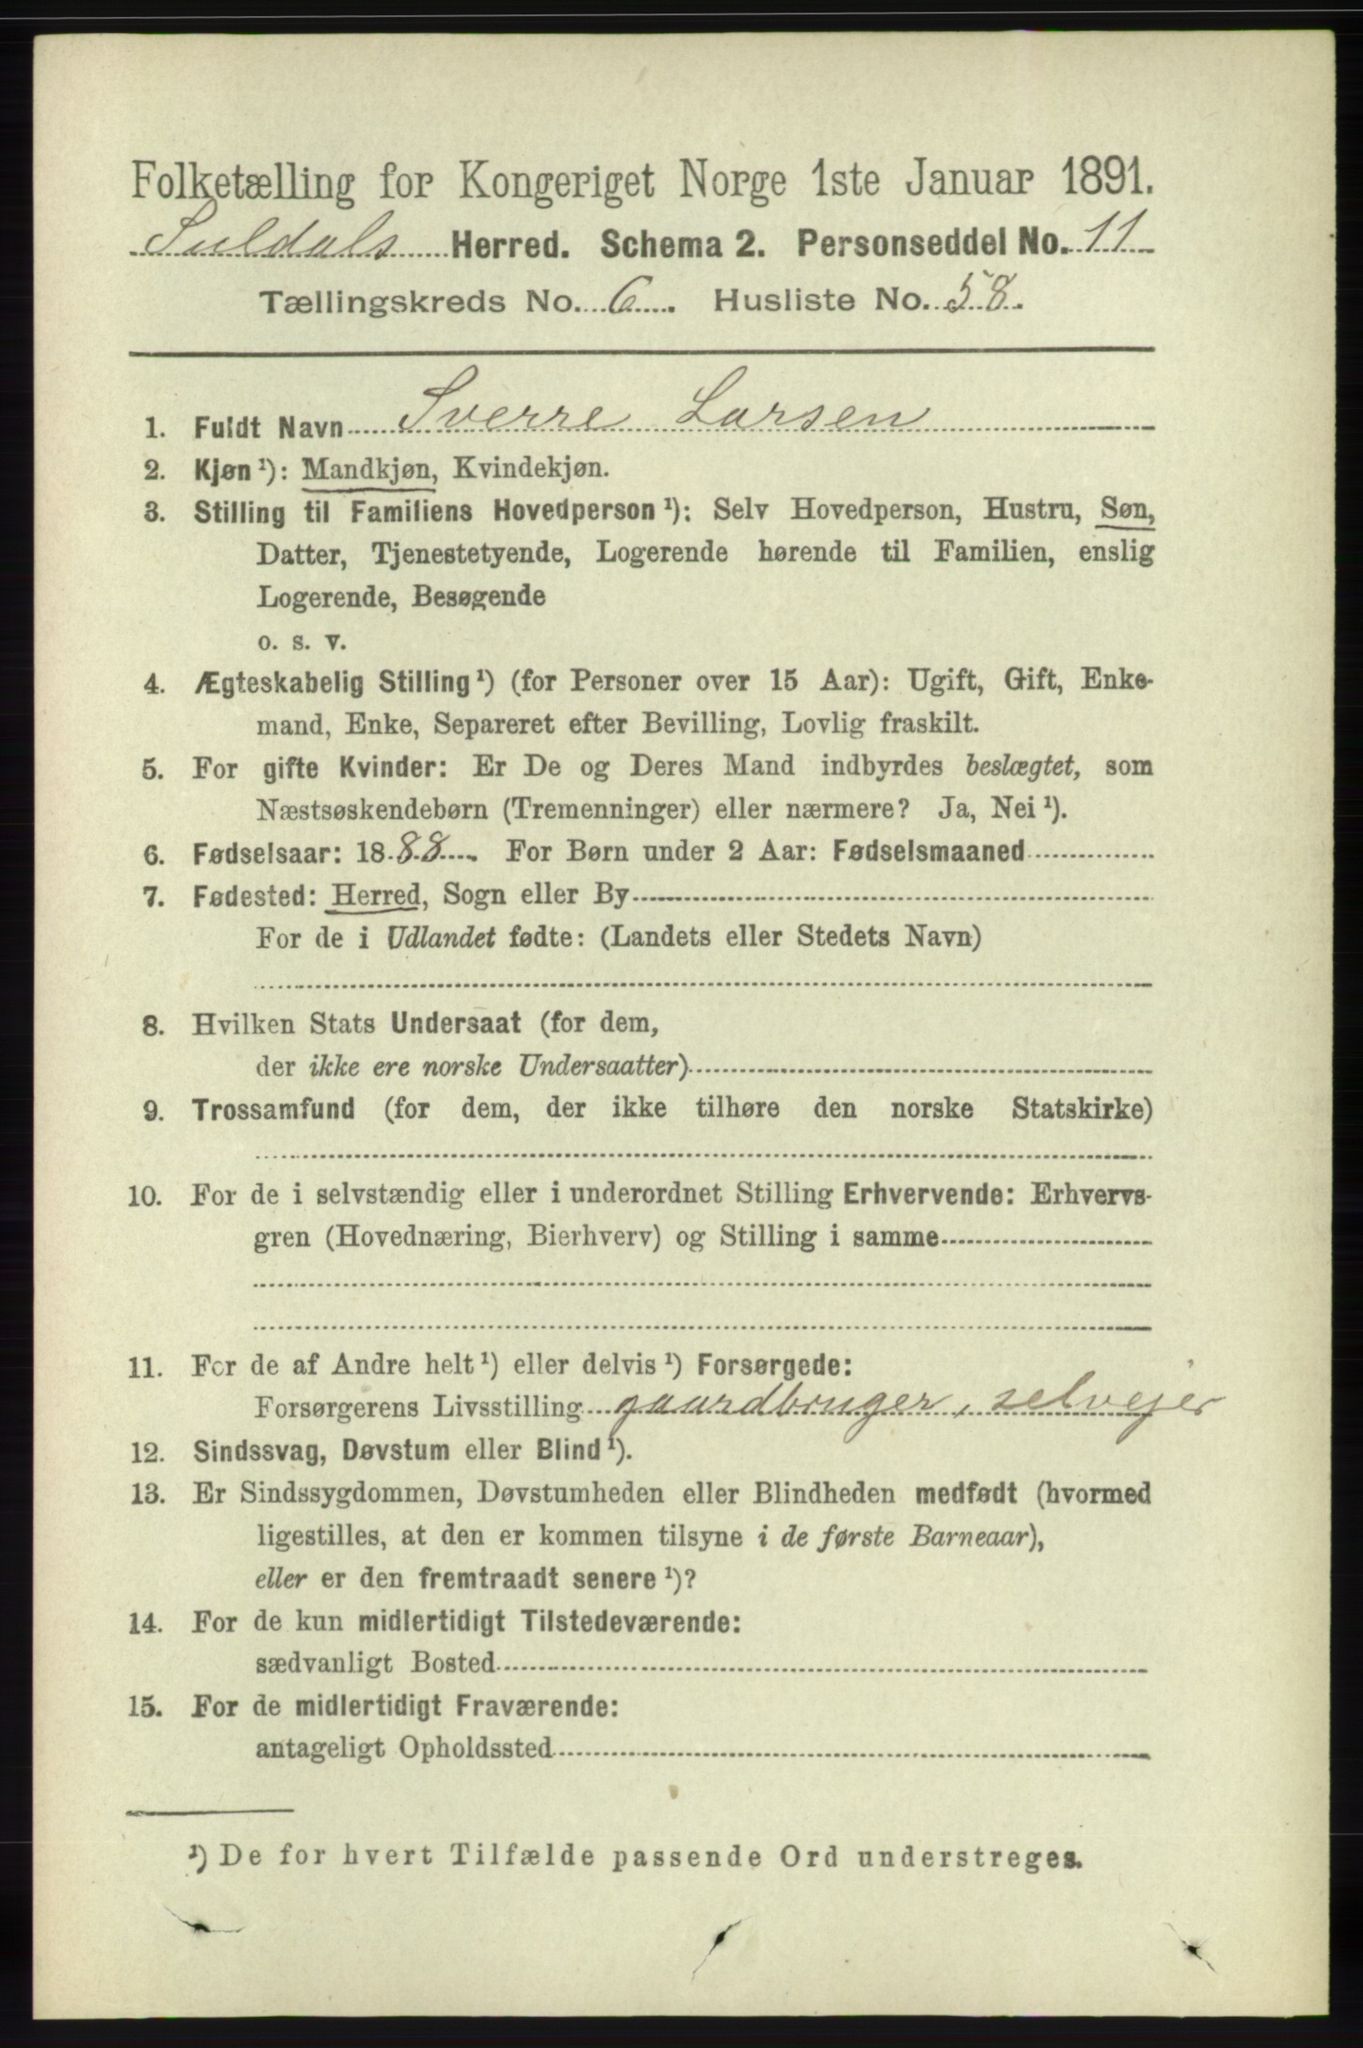 Folketælling for Kongeriget Norge 1ste Januar 1891.
Suldals Herred. Schema 2. Personseddel No. 11
Tællingskreds No. 6. Husliste No. 58.
1. Fuldt Navn Sverre Larsen
2. Kjøn ¹): Mandkjøn, Kvindekjøn.
3. Stilling til Familiens Hovedperson ¹): Selv Hovedperson, Hustru, Søn,
Datter, Tjenestetyende, Logerende hørende til Familien, enslig
Logerende, Besøgende
o. s. v.
4. Ægteskabelig Stilling ¹) (for Personer over 15 Aar): Ugift, Gift, Enke-
mand, Enke, Separeret efter Bevilling, Lovlig fraskilt.
5. For gifte Kvinder: Er De og Deres Mand indbyrdes beslægtet, som
Næstsøskendebørn (Tremenninger) eller nærmere? Ja, Nei ¹).
6. Fødselsaar: 1888. For Børn under 2 Aar: Fødselsmaaned
7. Fødested: Herred, Sogn eller By
For de i Udlandet fødte: (Landets eller Stedets Navn)
8. Hvilken Stats Undersaat (for dem,
der ikke ere norske Undersaatter)
9. Trossamfund (for dem, der ikke tilhøre den norske Statskirke)
10. For de i selvstændig eller i underordnet Stilling Erhvervende: Erhvervs-
gren (Hovednæring, Bierhverv) og Stilling i samme
11. For de af Andre helt ¹) eller delvis ¹) Forsørgede:
Forsørgerens Livsstilling gaardbruger, selvejer
12. Sindssvag, Døvstum eller Blind ¹).
13. Er Sindssygdommen, Døvstumheden eller Blindheden medfødt (hvormed
ligestilles, at den er kommen tilsyne i de første Barneaar),
eller er den fremtraadt senere ¹)?
14. For de kun midlertidigt Tilstedeværende:
sædvanligt Bosted
15. For de midlertidigt Fraværende:
antageligt Opholdssted
¹) De for hvert Tilfælde passende Ord understreges.